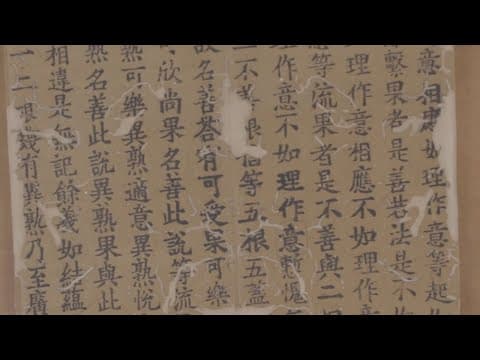 意相應如理作意等起
繫果者是善若法是不
理作意相應不如理作意
應等流果者是不善與二
作意不如理作意慙愧
二不善根信等五根五蓋
故名善答有可愛果可樂
可欣尚果名善此說等流
熟可樂異熟適意異熟悅
熟名善此說異熟果與此
相違是無記餘義如結蘊
一二根幾有異熟乃至廣